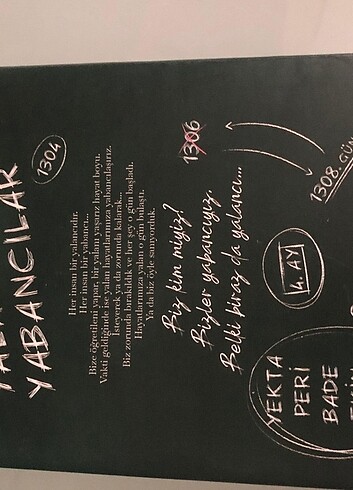 YABANCILAR
1304
Her insan bir yalancıdır.
Her insan bir yabancı...
Bize öğretileni yapar, bir yalanı yaşarız hayat boyu.
Vakti geldiğinde ise yalan hayatlarımıza yabancılaşırız.
İsteyerek ya da zorunda kalarak...
Biz zorunda bırakıldık ve her şey o gün başladı.
Hayatlarımıza yalan o gün bulaştı.
Ya da biz öyle sanıyorduk.
1306
Biz kim miyiz?
Bizler yabancıyız.
Belki biraz da yalancı...
1308. GÜN
14. AY
YEKTA
PERİ
BADE